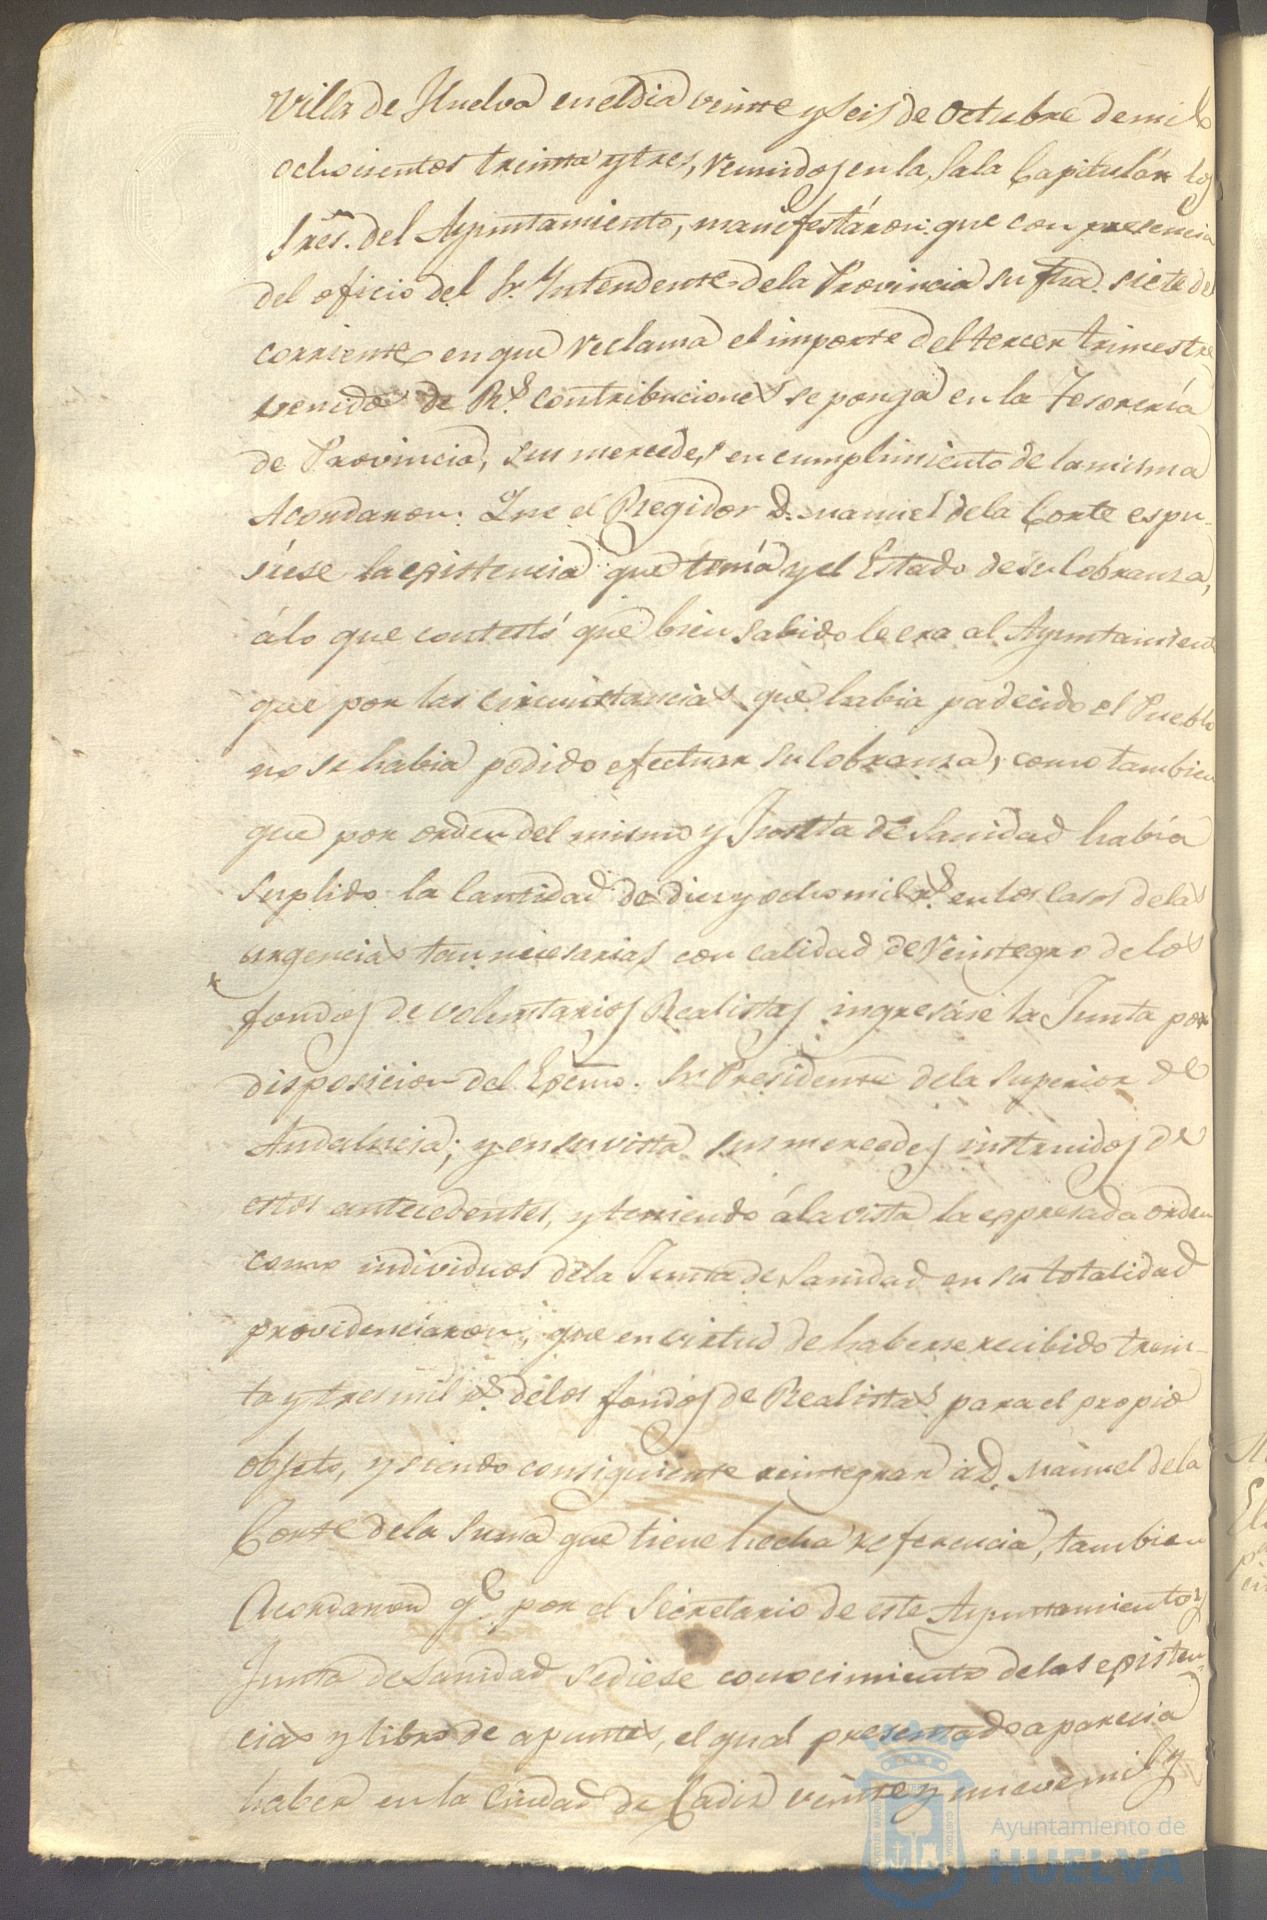 Villa de Huelva en el dia veinte y seis de Octubre de mil
ochocientos treinta y tres, reunidos en la Sala Capitulár los
Sres. del Ayuntamiento, manifestáron: que con presencia
del oficio del Sr. Yntendente de la Provincia su fha. siete del
corriente en que reclama el importe del tercer trimestre
vencido de Rs. contribuciones se ponga en la Tesorería
de Provincia, sus mercedes en cumplimiento de la misma
Acordaron: Que el Regidor D. Manuel de la Corte espu-
siese la existencia que tenía y el Estado de su Cobranza,
á lo que contestó que bien sabido le era al Ayuntamiento
que por las circunstancias que habia padecido el Pueblo
no se habia podido efectuar su Cobranza, como tambien
que por orden del mismo y Junta de Sanidad había
suplido la Cantidad de diez y ocho mil rs. en los casos de las
urgencias tan necesarias con calidad de reintegro de los
fondos de voluntarios Realistas ingresáse la Junta por
disposicion del Excmo. Sr. Presidente de la Superior de
Andalucia; y en su vista sus mercedes instruidos de
estos antecedentes, y teniendo á la vista la expresada orden
como individuos de la Junta de Sanidad en su totalidad
providenciáron, que en virtud de haberse recibido trein-
ta y tres mil rs. de los fondos de Realistas para el propio
objeto, y siendo consiguiente reintegrar á D. Manuel de la
Corte de la Suma que tiene hecha referencia, tambien
Acordaron qe. por el Secretario de este Ayuntamiento y
Junta de Sanidad se diese conocimiento de las existen-
cias y libro de apuntes, el qual presentado aparecia
haber en la Ciudad de Cadiz veinte y nueve mil y
Ayuntamiento de
HUELVA